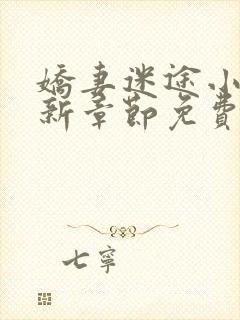 嬌妻迷途小
新章節免費
七寧